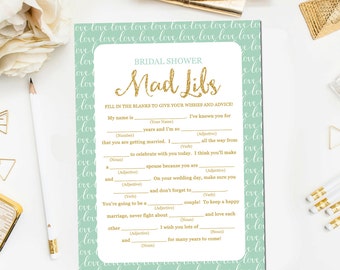 BRIDAL SHOWER
Mad Libs
FILL IN THE BLANKS TO GIVE YOUR WISHES AND ADVICE!
My name is ____________. I've known you for
(Your Name)
________ years and I'm so ________, ________
(Number) (Adjective) (Adjective)
that you are getting married. I ________ all the way from
(Verb)
________ to celebrate with you today. I think you'll make
(Noun)
a ________ spouse because you are ________
(Adjective) (Adjective)
and ________. On your wedding day, make sure you
(Adjective)
________ and don't forget to ________.
(Verb) (Verb)
You're going to be a ________ couple! To keep a happy
(Adjective)
marriage, never fight about ________ and love each
(Noun)
other ________. I wish you lots of ________
(Noun)
and ________ for many years to come!
(Noun)
love love love love love love